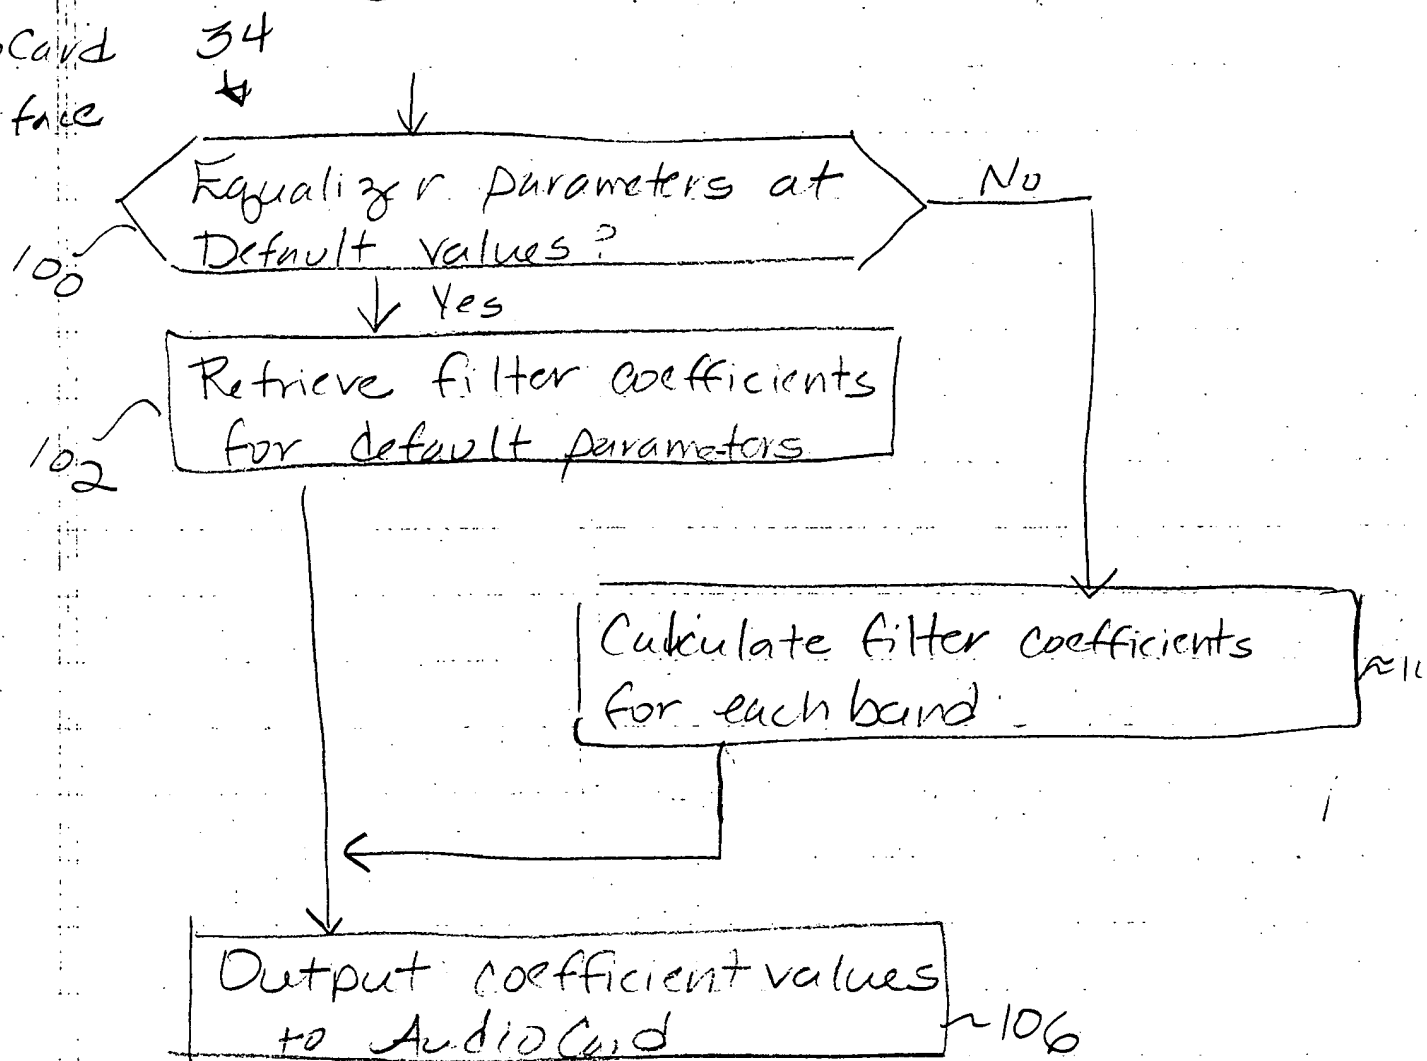 Card 34
face
Equalizer parameters at
Default values?
No
100
Yes
Retrieve filter coefficients
for default parameters
102
Calculate filter coefficients
for each band
Output coefficient values
to AudioCard
106